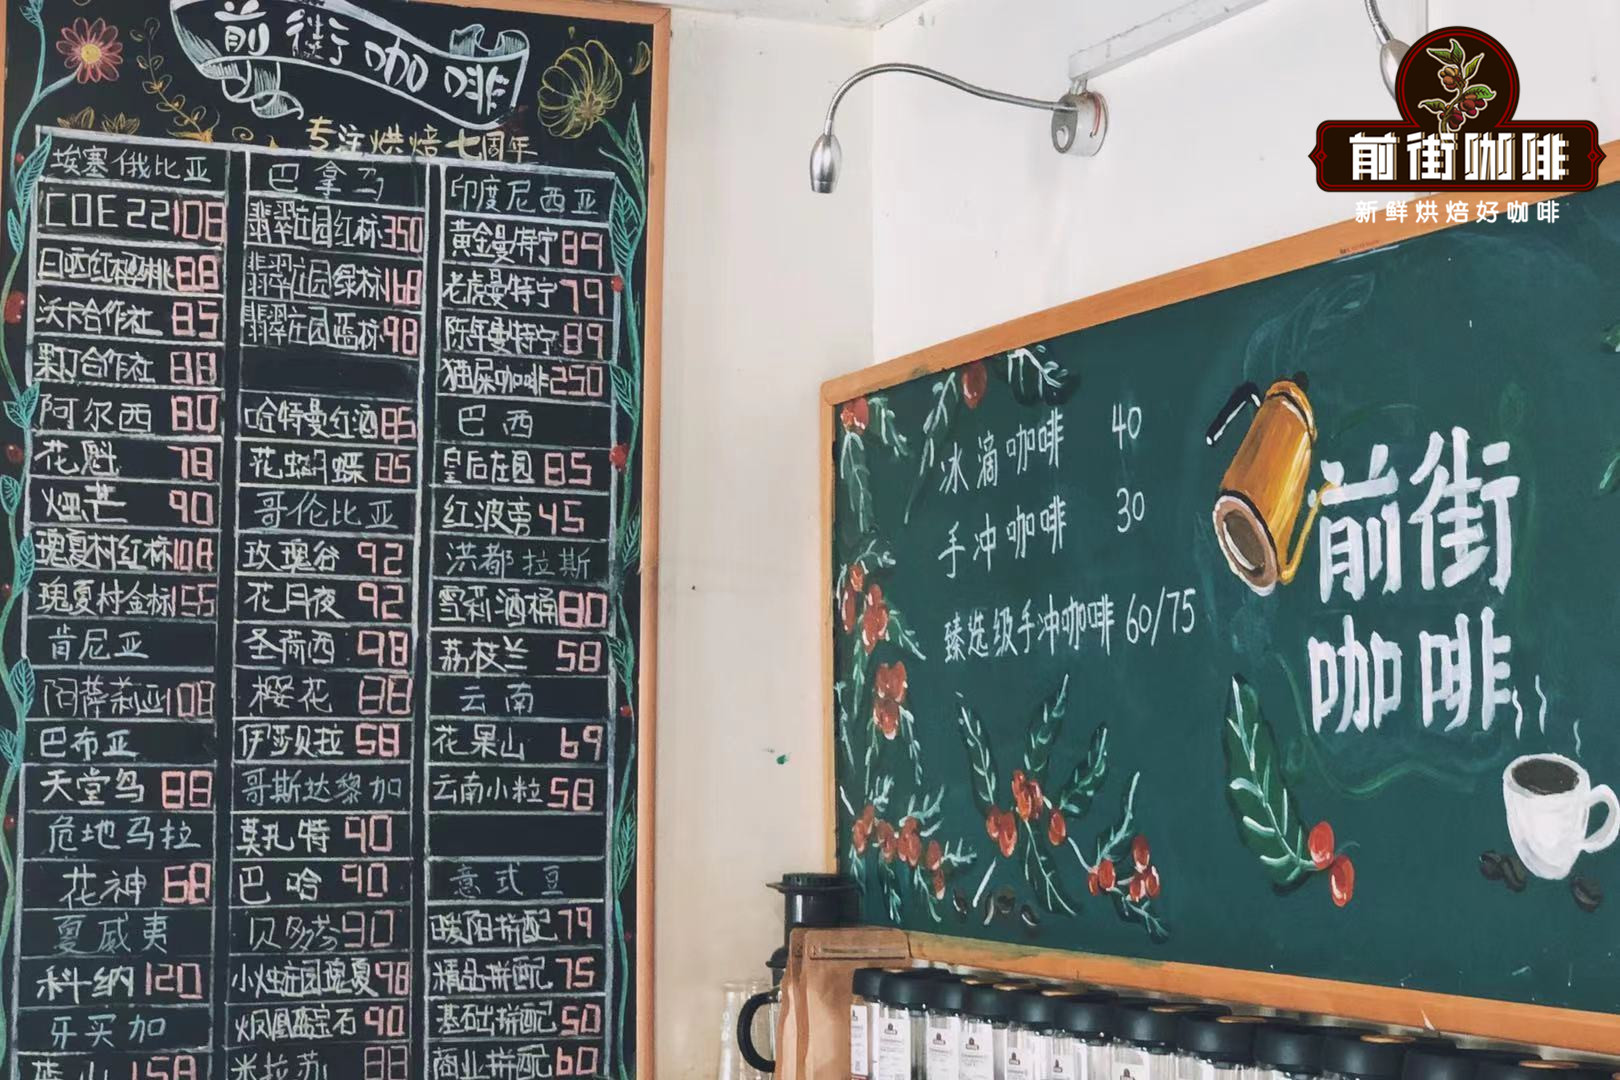 前街咖啡
专注烘焙七周年
埃塞俄比亚
COE 22 108
日晒红樱桃 88
沃卡合作社 85
果丁丁合作社 88
阿尔西 80
花魁 78
烛芒 90
瑰夏村红标 108
瑰夏村金标 155
肯尼亚
阿萨莉亚 108
巴布亚
天堂鸟 88
危地马拉
花神 68
夏威夷
科纳 120
牙买加
蓝山 158
巴拿马
翡翠庄园红标 350
翡翠庄园绿标 168
翡翠庄园蓝标 98
哈特曼红酒 85
花蝴蝶 85
哥伦比亚
玫瑰谷 92
花月夜 92
圣荷西 98
樱花 88
伊莎贝拉 58
哥斯达黎加
莫扎特 90
巴哈 90
贝多芬 90
小烛庄园瑰夏 98
火凤凰蓝宝石 90
米拉苏 88
印度尼西亚
黄金曼特宁 89
老虎曼特宁 79
陈年曼特宁 89
猫屎咖啡 250
巴西
皇后庄园 85
红波旁 45
洪都拉斯
雪莉酒桶 80
荔枝兰 58
云南
花果山 69
云南小粒 58
意式豆
暖阳拼配 79
精品拼配 75
基础拼配 50
商业拼配 60
冰滴咖啡 40
手冲咖啡 30
臻选级手冲咖啡 60/75
前街
咖啡
前街咖啡
新鲜烘焙好咖啡